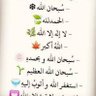 - سُبحان الله
- الحمدلله
- لا إله إلا الله
- الله أكبر
- سُبحان الله و بحمده
- سُبحان الله العظيم
- استغفر الله و أتوب إليه